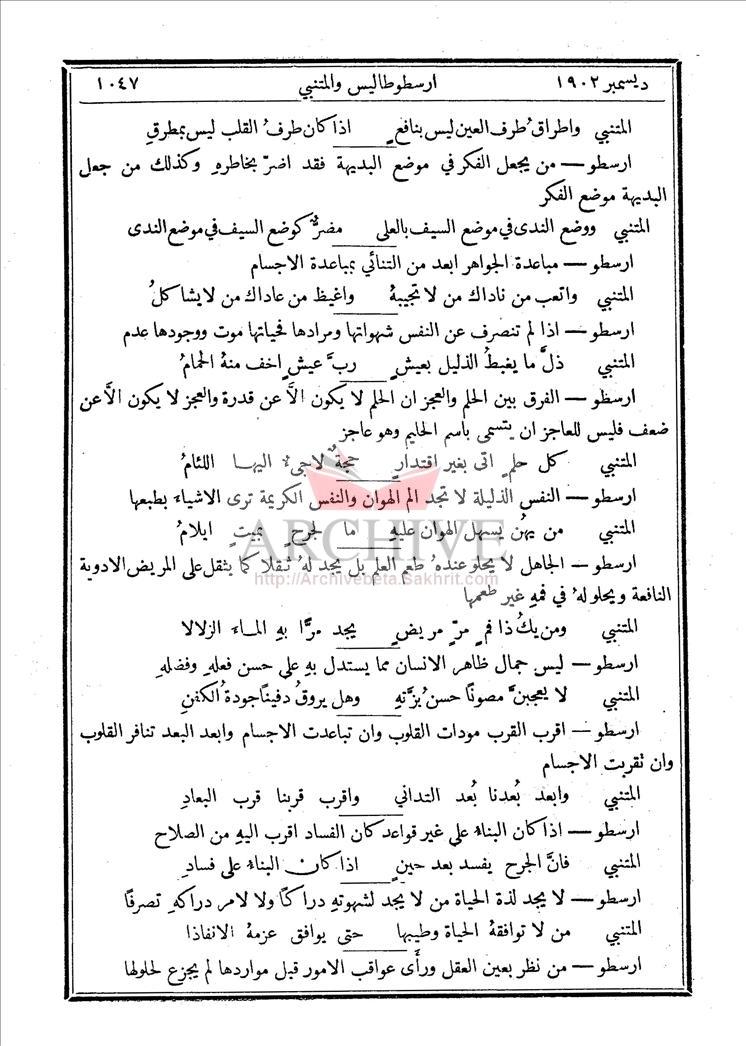 ديسمبر ١٩٠٢ ارسطوطاليس والمتنبي ١٠٤٧
المتنبي واطراقُ طرف العين ليس بنافعٍ اذا كان طرفُ القلب ليس بمطرقِ
ارسطو — من يجعل الفكر في موضع البديهة فقد اضرّ بخاطرهِ وكذلك من جعل
البديهة موضع الفكر
المتنبي ووضع الندى في موضع السيف بالعلى مضرٌّ كوضع السيف في موضع الندى
ارسطو — مباعدة الجواهر ابعد من التنائي بمباعدة الاجسام
المتنبي واتعب من ناداك من لا تجيبهُ واغيظ من عاداك من لا يشاكلُ
ارسطو — اذا لم تنصرف عن النفس شهواتها ومرادها فحياتها موت ووجودها عدم
المتنبي ذلَّ ما يغبطُ الذليل بعيشٍ ربَّ عيشٍ اخف منهُ الحمامُ
ارسطو — الفرق بين الحلم والعجز ان الحلم لا يكون الاَّ عن قدرة والعجز لا يكون الاَّ عن
ضعف فليس للعاجز ان يتسمى باسم الحليم وهو عاجز
المتنبي كل حلمٍ اتى بغير اقتدارٍ حجةٌ لاجىءٌ اليها اللئامُ
ارسطو — النفس الذليلة لا تجد الم الهوان والنفس الكريمة ترى الاشياء بطبعها
المتنبي من يهُن يسهل الهوان عليهِ ما لجرحٍ بميتٍ ايلامُ
ARCHIVE
ارسطو — الجاهل لا يحلو عندهُ طعم العلم بل يجد لهُ ثقلا كما يثقل على المريض الادوية
http://Archivebeta.Sakhrit.com
النافعة ويحلو لهُ في فمهِ غير طعمها
المتنبي ومن يكُ ذا فمٍ مرٍّ مريضٍ يجد مرًّا بهِ الماء الزلالا
ارسطو — ليس جمال ظاهر الانسان مما يستدل بهِ على حسن فعلهِ وفضلهِ
المتنبي لا يعجبنَّ مصونًا حسنُ بزّتهِ وهل يروقُ دفينًا جودةُ الكفنِ
ارسطو — اقرب القرب مودات القلوب وان تباعدت الاجسام وابعد البعد تنافر القلوب
وان تقربت الاجسام
المتنبي وابعد بُعدنا بُعد التداني واقرب قربنا قرب البعادِ
ارسطو — اذا كان البناءُ على غير قواعد كان الفساد اقرب اليهِ من الصلاح
المتنبي فانَّ الجرح يفسد بعد حينٍ اذا كان البناءُ على فسادِ
ارسطو — لا يجد لذة الحياة من لا يجد لشهوتهِ دراكًا ولا لامر دراكهِ تصرفًا
المتنبي من لا توافقهُ الحياة وطيبها حتى يوافق عزمهُ الانفاذا
ارسطو — من نظر بعين العقل ورأى عواقب الامور قبل مواردها لم يجزع لحلولها